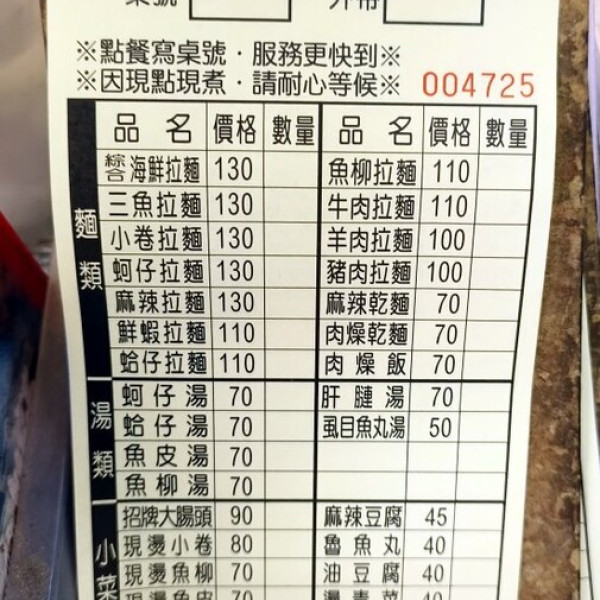 桌號 外帶
※點餐寫桌號‧服務更快到※
※因現點現煮‧請耐心等候※ 004725
品名 價格 數量 品名 價格 數量
麵類
綜合海鮮拉麵 130 魚柳拉麵 110
三魚拉麵 130 牛肉拉麵 110
小卷拉麵 130 羊肉拉麵 100
蚵仔拉麵 130 豬肉拉麵 100
麻辣拉麵 130 麻辣乾麵 70
鮮蝦拉麵 110 肉燥乾麵 70
蛤仔拉麵 110 肉燥飯 70
湯類
蚵仔湯 70 肝膁湯 70
蛤仔湯 70 虱目魚丸湯 50
魚皮湯 70
魚柳湯 70
小菜
招牌大腸頭 90 麻辣豆腐 45
現燙小卷 80 魯魚丸 40
現燙魚柳 70 油豆腐 40
現燙魚皮 70 燙青菜 40